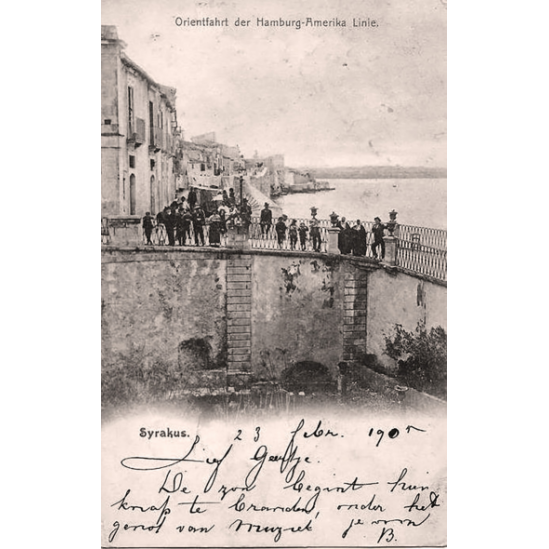 Orientfahrt der Hamburg-Amerika Linie.
Syrakus. 23 febr. 1905
Lief Geertje.
De zon begint hier
knap te branden, onder het
genot van muziek je vom
B.